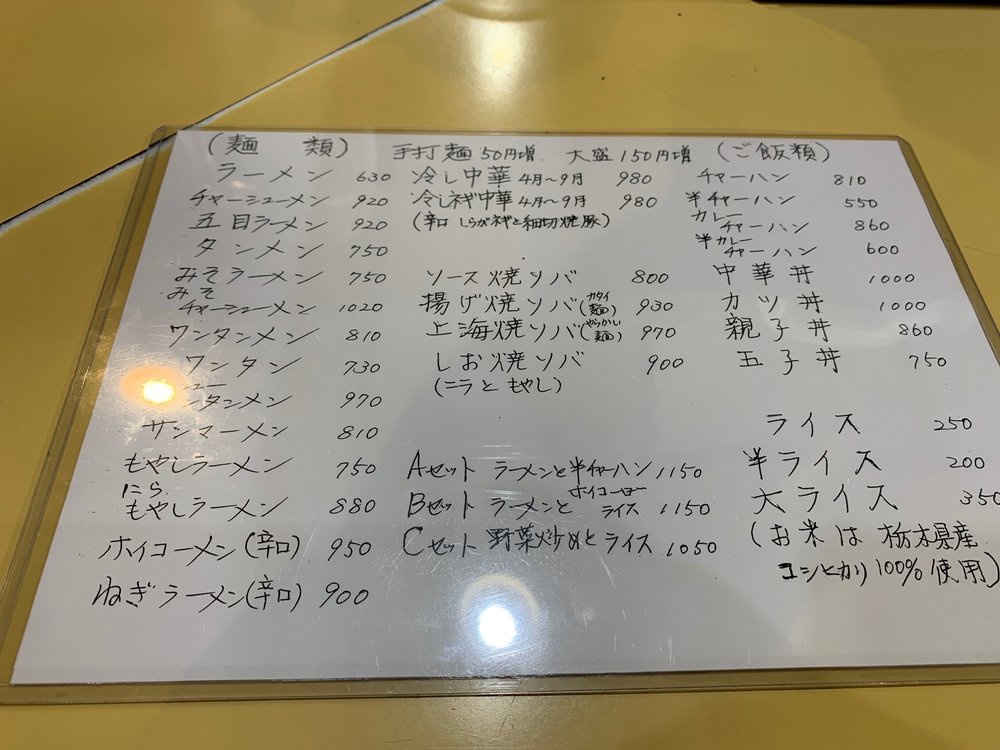 (麺 類)
ラーメン 630
チャーシューメン 920
五目ラーメン 920
タンメン 750
みそラーメン 750
みそ
チャーシューメン 1020
ワンタンメン 810
ワンタン 730
ンタンメン 970
サンマーメン 810
もやしラーメン 750
にら
もやしラーメン 880
ホイコーメン(辛口) 950
ねぎラーメン(辛口) 900
手打麺50円増. 大盛150円増
冷し中華 4月~9月 980
冷し葱中華 4月~9月 980
(辛口 しらがネギと細切焼豚)
ソース焼ソバ 800
揚げ焼ソバ(カタイ麺) 930
上海焼ソバ(やわらかい麺) 970
しお焼ソバ 900
(ニラともやし)
Aセット ラーメンと半チャーハン 1150
Bセット ラーメンとホイコーローライス 1150
Cセット 野菜炒めとライス 1050
(ご飯類)
チャーハン 810
半チャーハン 550
カレー
チャーハン 860
半カレー
チャーハン 600
中華丼 1000
カツ丼 1000
親子丼 860
玉子丼 750
ライス 250
半ライス 200
大ライス 350
(お米は 栃木県産
コシヒカリ100%使用)